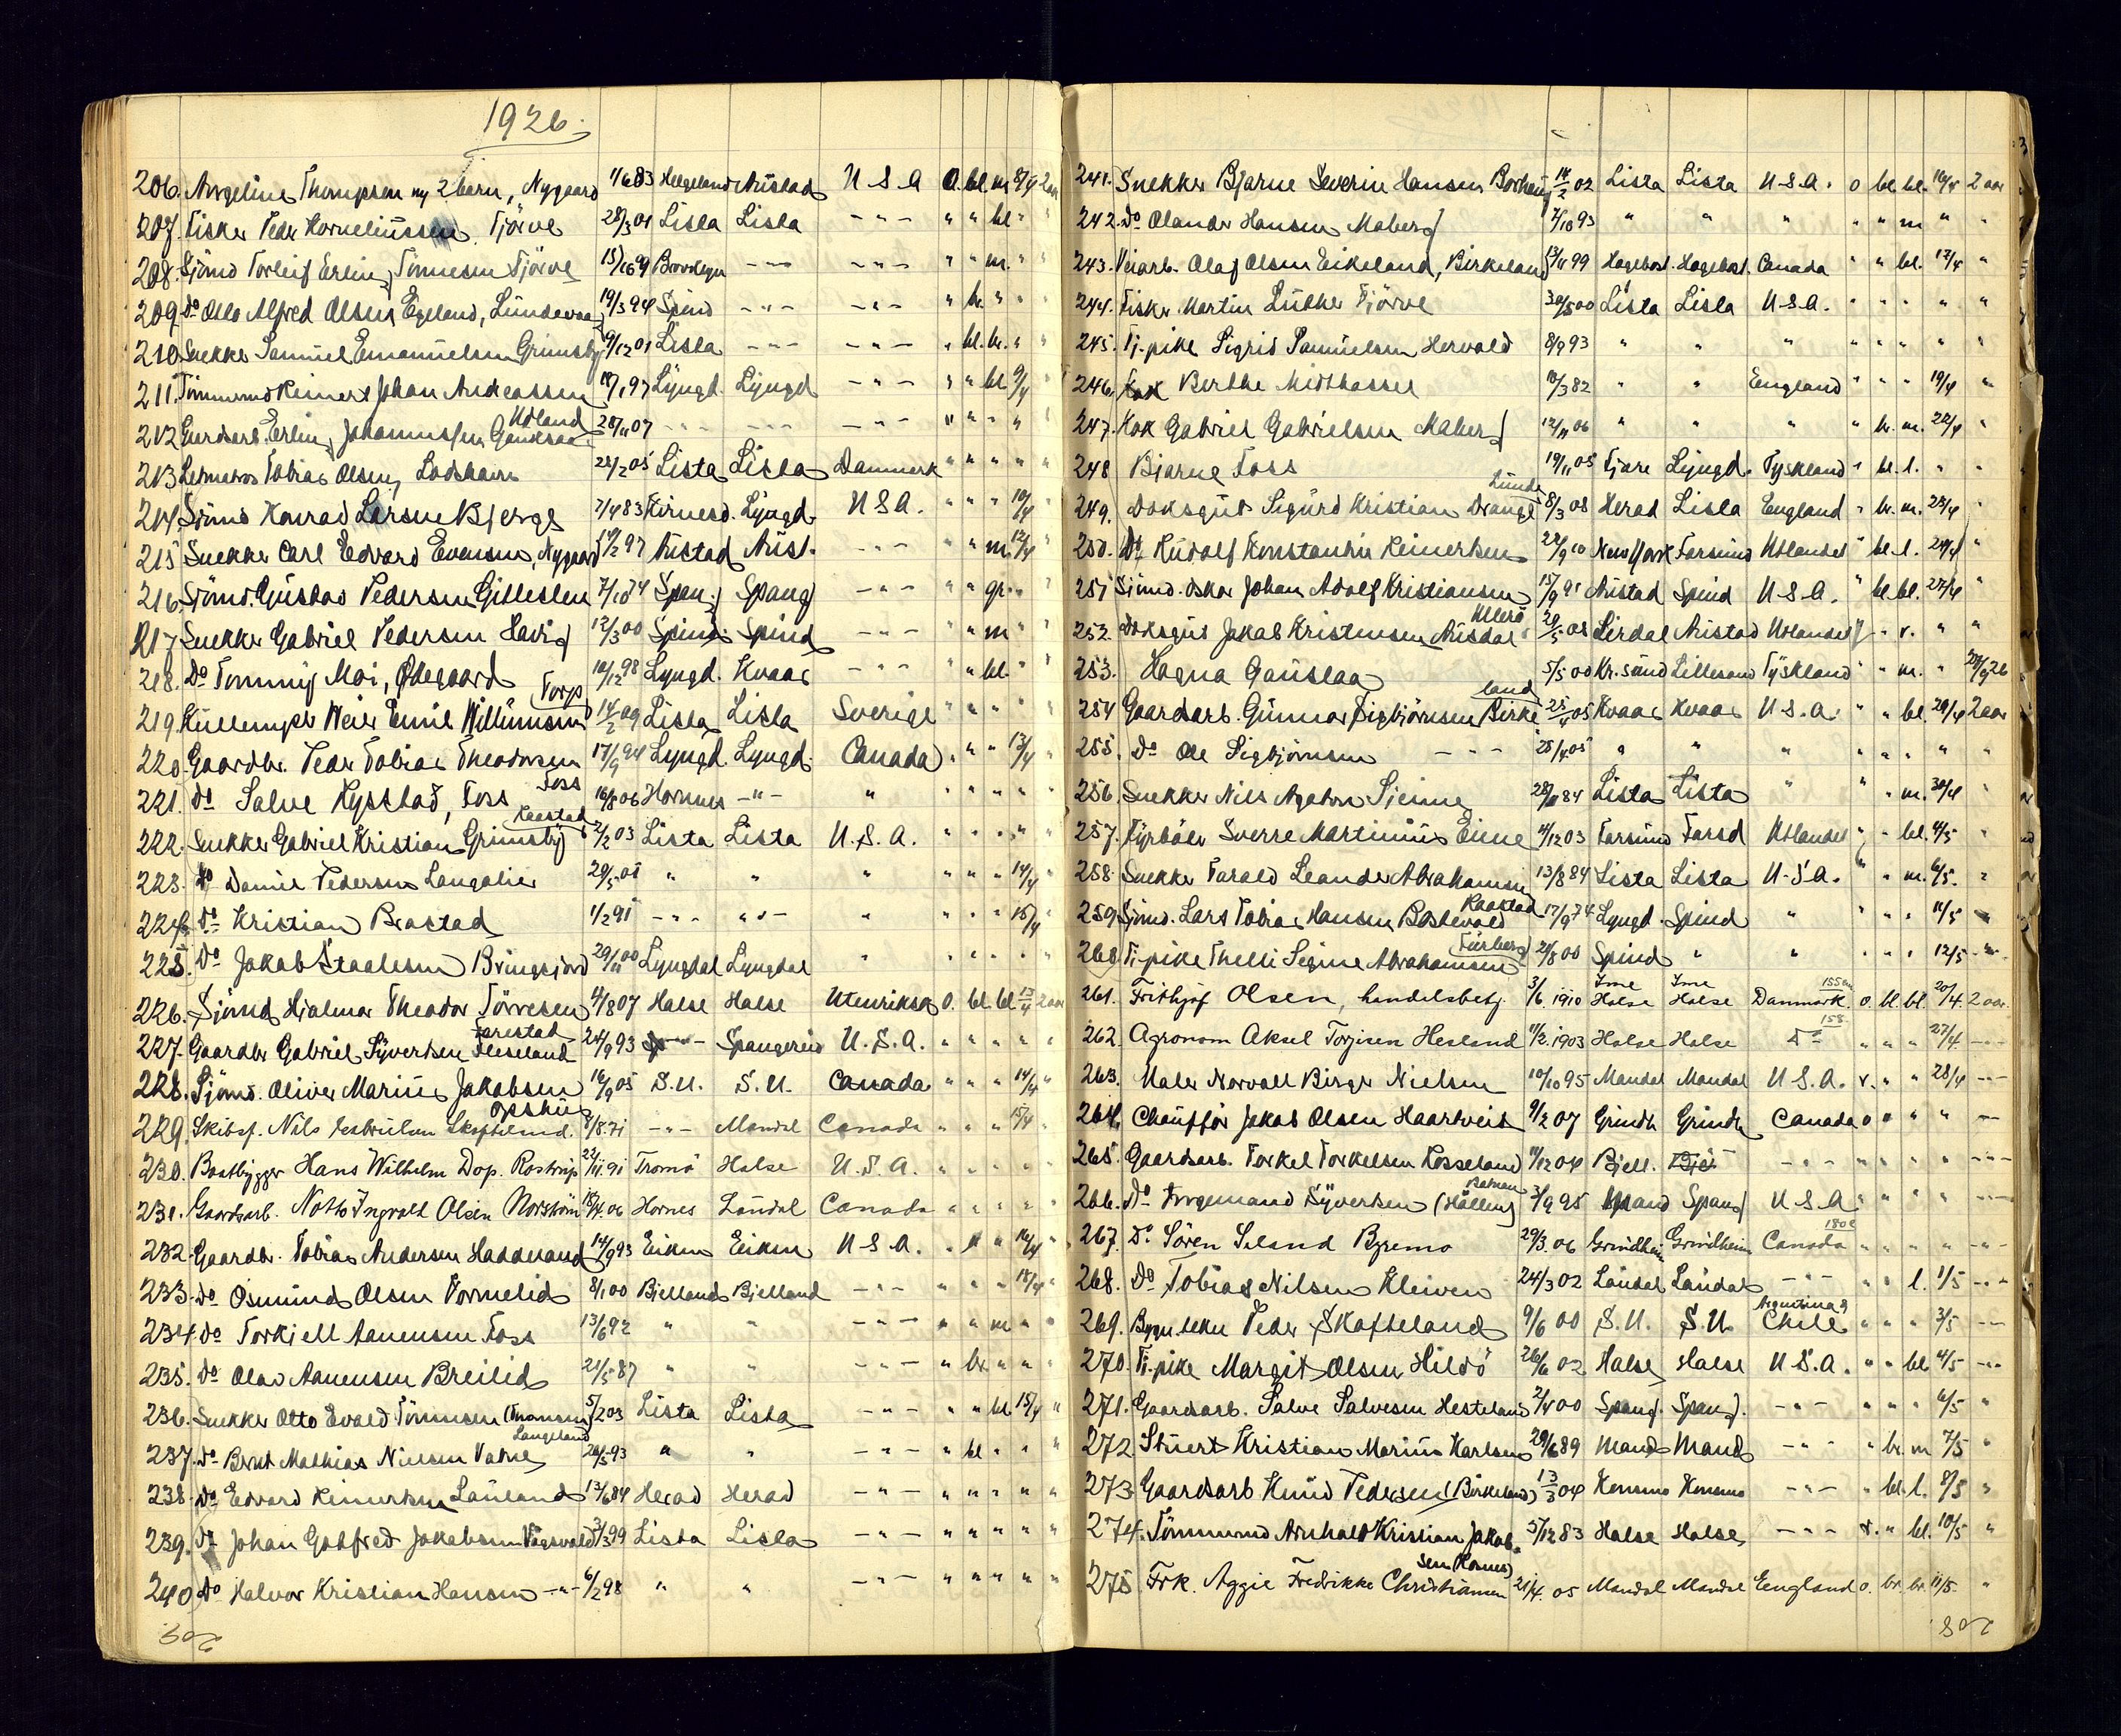 1926.
206. Angeline Thompson m/ 2 barn, Nygaard 1/6 83 Helgeland Austad U S A O. bl. m 8/4 2 aar
207. Fisker Peder Korneliussen Tjörve 28/3 01 Lista Lista - " - " " bl. " "
208. Sjömd Torleif Erling Tönnesen Tjörve 15/10 99 Brooklyn - " - - " - " " m. " "
209. Do Otto Alfred Olsen Egeland, Lundevaag 19/3 94 Spind - " - - " - " br. " " "
210. Snekker Samuel Emanuelsen Grimsby 9/12 01 Lista - " - - " - " bl. br. " "
211. Tömmermd Reinert Johan Andreassen 18/1 97 Lyngd. Lyngd - " - " " bl. 9/4 "
Udland
212 Gardsarb. Erling Johannessen Gauksaas 28/11 07 - " - - " - - " - " " " " "
213 Letmatros Tobias Olsen, Lodshavn 28/2 05 Lista Lista Danmark " " " " "
214. Sjömd Konrad Larsen Bjerge 2/4 83 Kirnesd. Lyngd. U S A. " " " 10/4 "
215 Snekker Carl Edvard Evensen, Nygaard 19/2 97 Austad Aust. - " - " " m. 12/4 "
216. Sjömd. Gustav Pedersen Gitlesten 7/10 74 Spang Spang - " - " " gr. " "
217 Snekker Gabriel Pedersen Havig 12/3 00 Spind Spind - " - " " m " "
218. Do Tommy Moi, Ødegaard 10/12 98 Lyngd. Kvaas - " - " " bl. " "
Torp
219. Kullemper Meier Emil Williumsen 14/2 09 Lista Lista Sverige " " " " "
220. Gaardbr. Peder Tobias Theodorsen Foss 17/9 94 Lyngd. Lyngd. Canada " " " 13/4 "
221. do Salve Rysstad, Foss 16/8 06 Hornnes - " - " " " " " "
Raastad
222. Snekker Gabriel Kristian Grimsby 2/2 03 Lista Lista U. S. A. " " " " "
223. Do Daniel Pedersen Langelier 29/5 05 " " " " " " 14/4 "
224. Do Kristian Brastad 1/2 91 - " - " - " " " " 15/4 "
225. Do Jakob Staalesen Bringsjord 29/11 00 Lyngdal Lyngdal " " " " " "
226. Sjömd Hjalmar Theodor Törresen 4/8 07 Halse Halse Utenriksk O. bl. bl. 13/4 2 aar
Jarestad
227. Gaardbr Gabriel Syvertsen Fleseland 24/9 93 - " - Spangereid U. S. A. " " " " "
228. Sjömd. Oliver Marius Jakobsen 16/9 05 S. U. S. U. Canada " " " 14/4 "
Opshus
229. Skibsf. Nils Gabrielsen Skofteland. 8/8. 71 - " - Mandal Canada " " " 15/4 "
230. Baatbygger Hans Wilhelm Dop. Rostrup 22/11. 91 Tromö Halse U. S. A. " " " " "
231. Gaardsarb. Notto Ingvald Olsen Norsköm 18/4. 06 Hornes Laudal Canada " " " " "
232. Gaardbr. Tobias Andersen Haddeland 14/9 93 Eiken Eiken U S A " " " 16/4 "
233. do Osmund Olsen Vormelid 8/1 00 Bjelland Bjelland - " - " " " 15/4 "
234. do Torkjell Aanensen Foss 13/6 92 " " - " - " " m " "
235. do Olav Aanensen Breilid 21/5 87 " " - " - " br. " " "
236. Snekker Otto Evald Tönnesen (Thomsen) 5/2 03 Lista Lista - " - " " bl. 15/4 "
Langeland
237. do Bernt Mathias Nielsen Vatne 26/5 93 " " - " - " bl " " "
238. do Edvard Reinertsen Lauland 13/6 84 Herad Herad - " - " " " " "
239. Do Johan Gotfred Jakobsen Vaagsvold 3/3 99 Lista Lista - " - " " " " "
240. do Halvor Kristian Hansen - " - 6/2 98 " " - " - " " " " "
241. Snekker Bjarne Severin Hansen Borhaug 14/2 02 Lista Lista U.S.A. o bl. bl. 16/4 2 aar
242. Do Olander Hansen Maberg 7/10 93 " " " " " m " "
243. Veiarb. Olaf Olsen Eikeland, Birkeland 13/11 99 Hægebost. Hægebost. Canada " " bl. 17/4 "
244. Fisker Martin Luther Tjörve 30/5 00 Lista Lista U. S. A. " " " " "
245. Tj. pike Sigrid Samuelsen Hervold 8/9 93 " " " " " " " "
246. Frk Berthe Midthassel 10/3 82 " " England " " " 19/4 "
247. Kok Gabriel Gabrielsen Maberg 12/11 06 " " " " br. m. 22/4 "
248 Bjarne Foss 19/11 05 Fjære Lyngd. Tyskland " bl. l. " "
Lunde
249. Doksgut Sigurd Kristian Drange 8/3 08 Herad Lista England " br. m. 23/4 "
250. Do Rudolf Konstantin Reinertsen 22/9 10 New York Farsund Utlandet " bl. l. 24/4 "
251 Sjömd. Oskar Johan Adolf Kristiansen 15/9 91 Austad Spind U. S. A. " bl. bl. 27/4 "
Ulerö
252. Doksgut Jakob Kristensen Ausdal 20/5 08 Lirdal Austad Utlandet " " r. " "
253. Hagna Gauslaa 5/5 00 Kr. sand Lillesand Tyskland " " m. " 28/9 26
land
254 Gaardsarb. Gunnar Sigbjörnsen Birke 25/4 05 Kvaas Kvaas U. S. A. " " bl. 29/4 2 aar
255. Do Ole Sigbjörnsen - " - 25/4 05 " " " " " " " "
256. Snekker Nils Agaton Stenne 28/11 84 Lista Lista " " " m. 30/4 "
257. Fyrböter Sverre Martinius Eime 4/12 03 Farsund Farsd Utlandet " " bl. 4/5 "
258. Snekker Tarald Leander Abrahamsen 13/8 84 Lista Lista U. S. A. " " m. 6/5. "
Raastad
259. Sjömd. Lars Tobias Hansen Bostevold 17/9 74 Lyngd. Spind " " " " 11/5 "
Furberg
260 Tj. pike Thelli Signe Abrahamsen 21/8 00 Spind " " " " " 12/5 "
261. Frithjof Olsen, handelsbetj. 3/6. 1910 Ime Halse Ime Halse Danmark. o. bl. bl. 20/4. 2 aar.
158
262. Agronom Aksel Torjusen Hesland 11/2. 1903 Halse Halse Do " " " 27/4. - " -
263. Maler Norvall Birger Nielsen 10/10 95 Mandal Mandal U. S. A. r. " " 28/4 - " -
264. Chauffør Jakob Olsen Haartveit 9/2 07 Grindh Grindh Canada o " " " - " -
265. Gaardsarb. Torkel Torkelsen Kosseland 11/12 04 Bjell. - " - " " " " - " -
266. Do Tngemand Syvertsen (Hållen) 3/9 95 Spang U S A. " " " " - " -
180
267. Do Sören Seland Byremo 29/3. 06 Grindheim Grindheim Canada " " " " - " -
268. Do Tobias Nilsen Kleiven 24/3 02 Laudal Laudal - " - " " l. 1/5 - " -
Argentina og
269. Bygn. tekn Peder Skofteland 9/6 00 S. U. S. U. Chile " " " 3/5 - " -
270. Tj. pike Margit Olsen Hildö 26/6 02 Halse Halse U. S. A. " " bl. 4/5 - " -
271. Gaardsarb. Salve Salvesen Hesteland 2/4 00 Spang. Spang. - " - " " " 6/5 "
272 Stuert Kristian Marius Karlsen 29/6 89 Mand Mand - " - " br. m 7/5 "
273 Gaardsarb Knud Pedersen (Birkeland) 13/3 04 Konsmo Konsmo - " - " bl. l. 8/5 "
274. Tömmermd Arnhold Kristian Jakob- 5/12 83 Halse Halse - " - r. " bl. 10/5 "
sen (Kornes)
275 Frk. Aggie Fredrikke Christiansen 21/4. 05 Mandal Mandal England o. br. br. 11/5. "